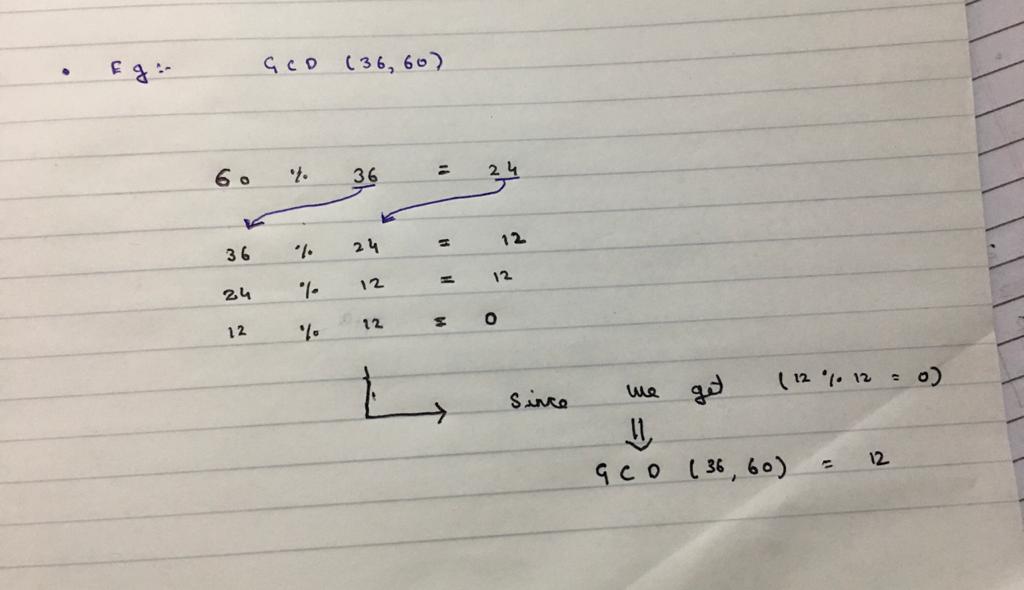 • Eg :- GCD (36, 60)
60 % 36 = 24
36 % 24 = 12
24 % 12 = 12
12 % 12 = 0
Since we get (12 % 12 = 0)
GCD (36, 60) = 12